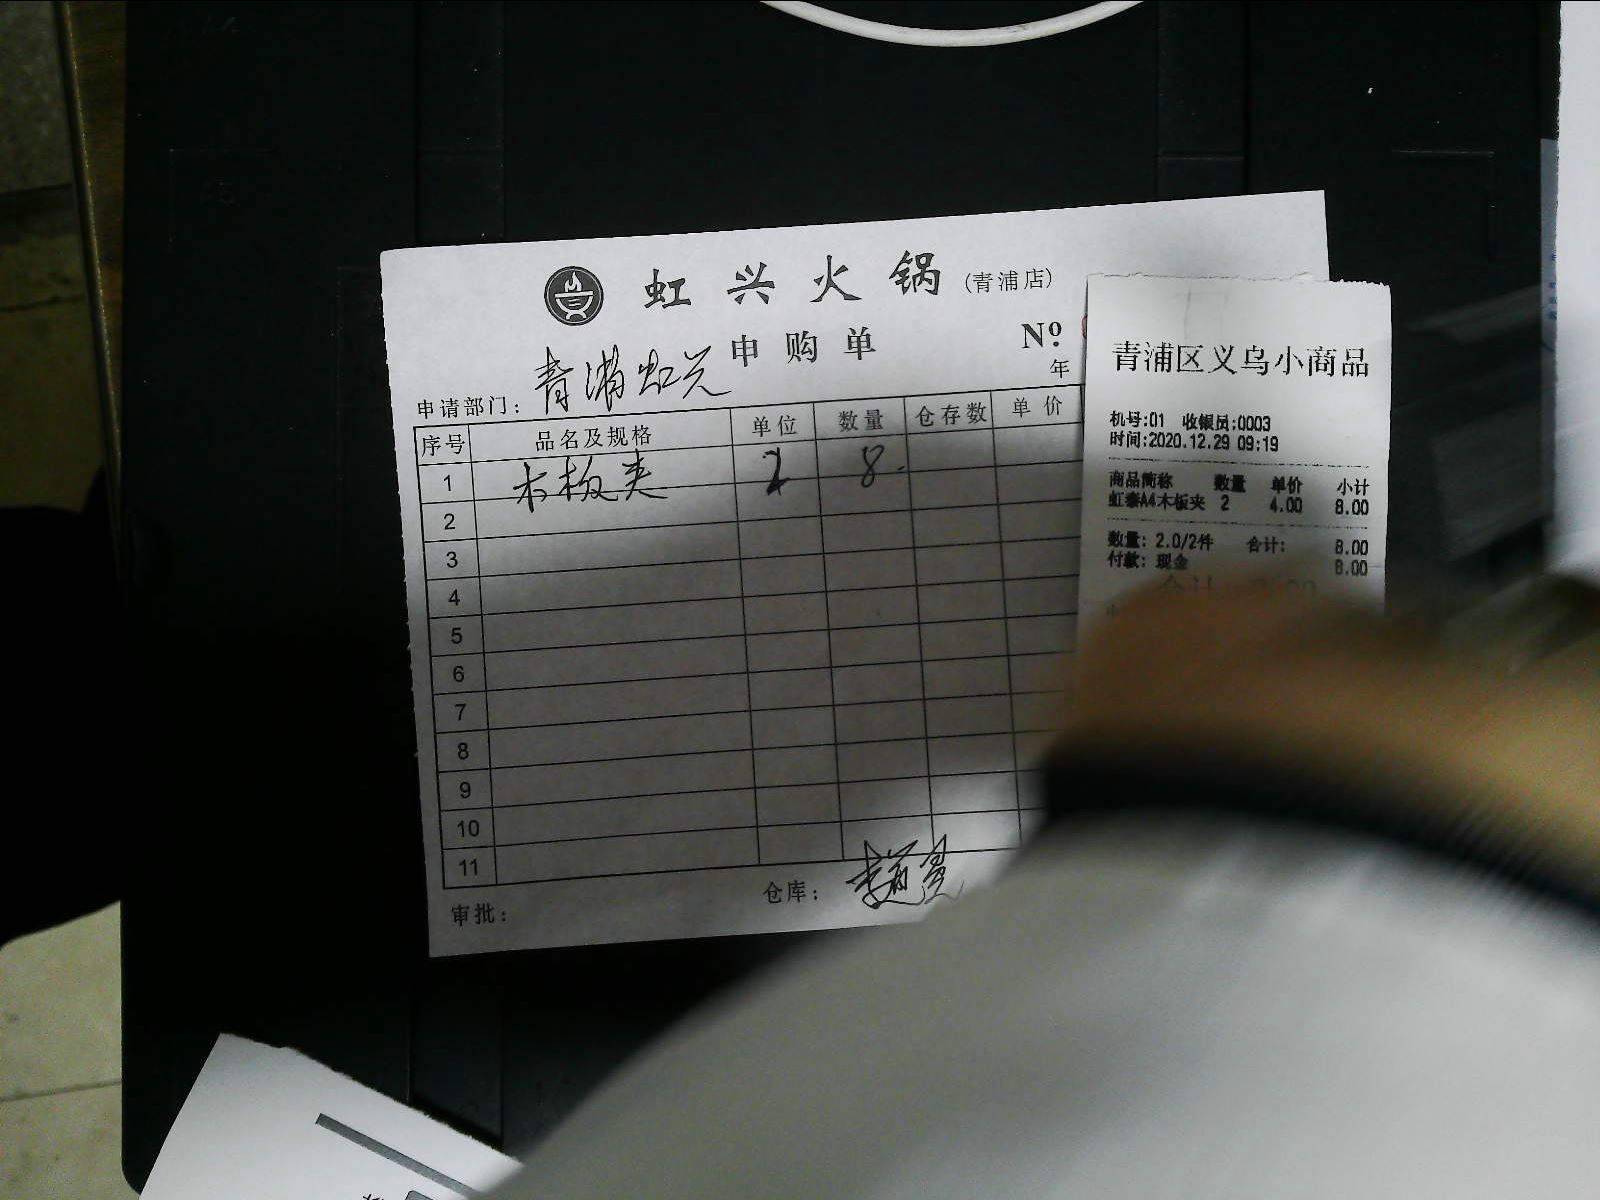 虹兴火锅(青浦店)
申购单
Nº
年
申请部门: 青浦虹兴
序号 品名及规格 单位 数量 仓存数 单价
1 木板夹 2 8
2
3
4
5
6
7
8
9
10
11
审批:
仓库:
青浦区义乌小商品
机号:01 收银员:0003
时间:2020.12.29 09:19
商品简称 数量 单价 小计
虹泰A4木板夹 2 4.00 8.00
数量: 2.0/2件 合计: 8.00
付款: 现金 8.00